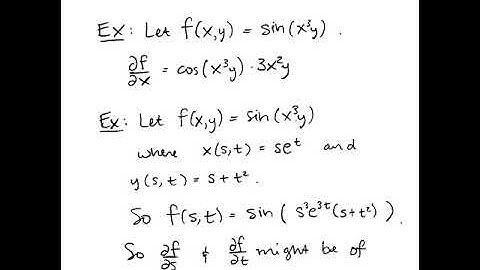 Ex: Let f(x,y) = sin(x³y).
∂f/∂x = cos(x³y) · 3x²y
Ex: Let f(x,y) = sin(x³y)
where x(s,t) = se^t and
y(s,t) = s+t².
So f(s,t) = sin(s³e^3t(s+t²)).
So ∂f/∂s & ∂f/∂t might be of